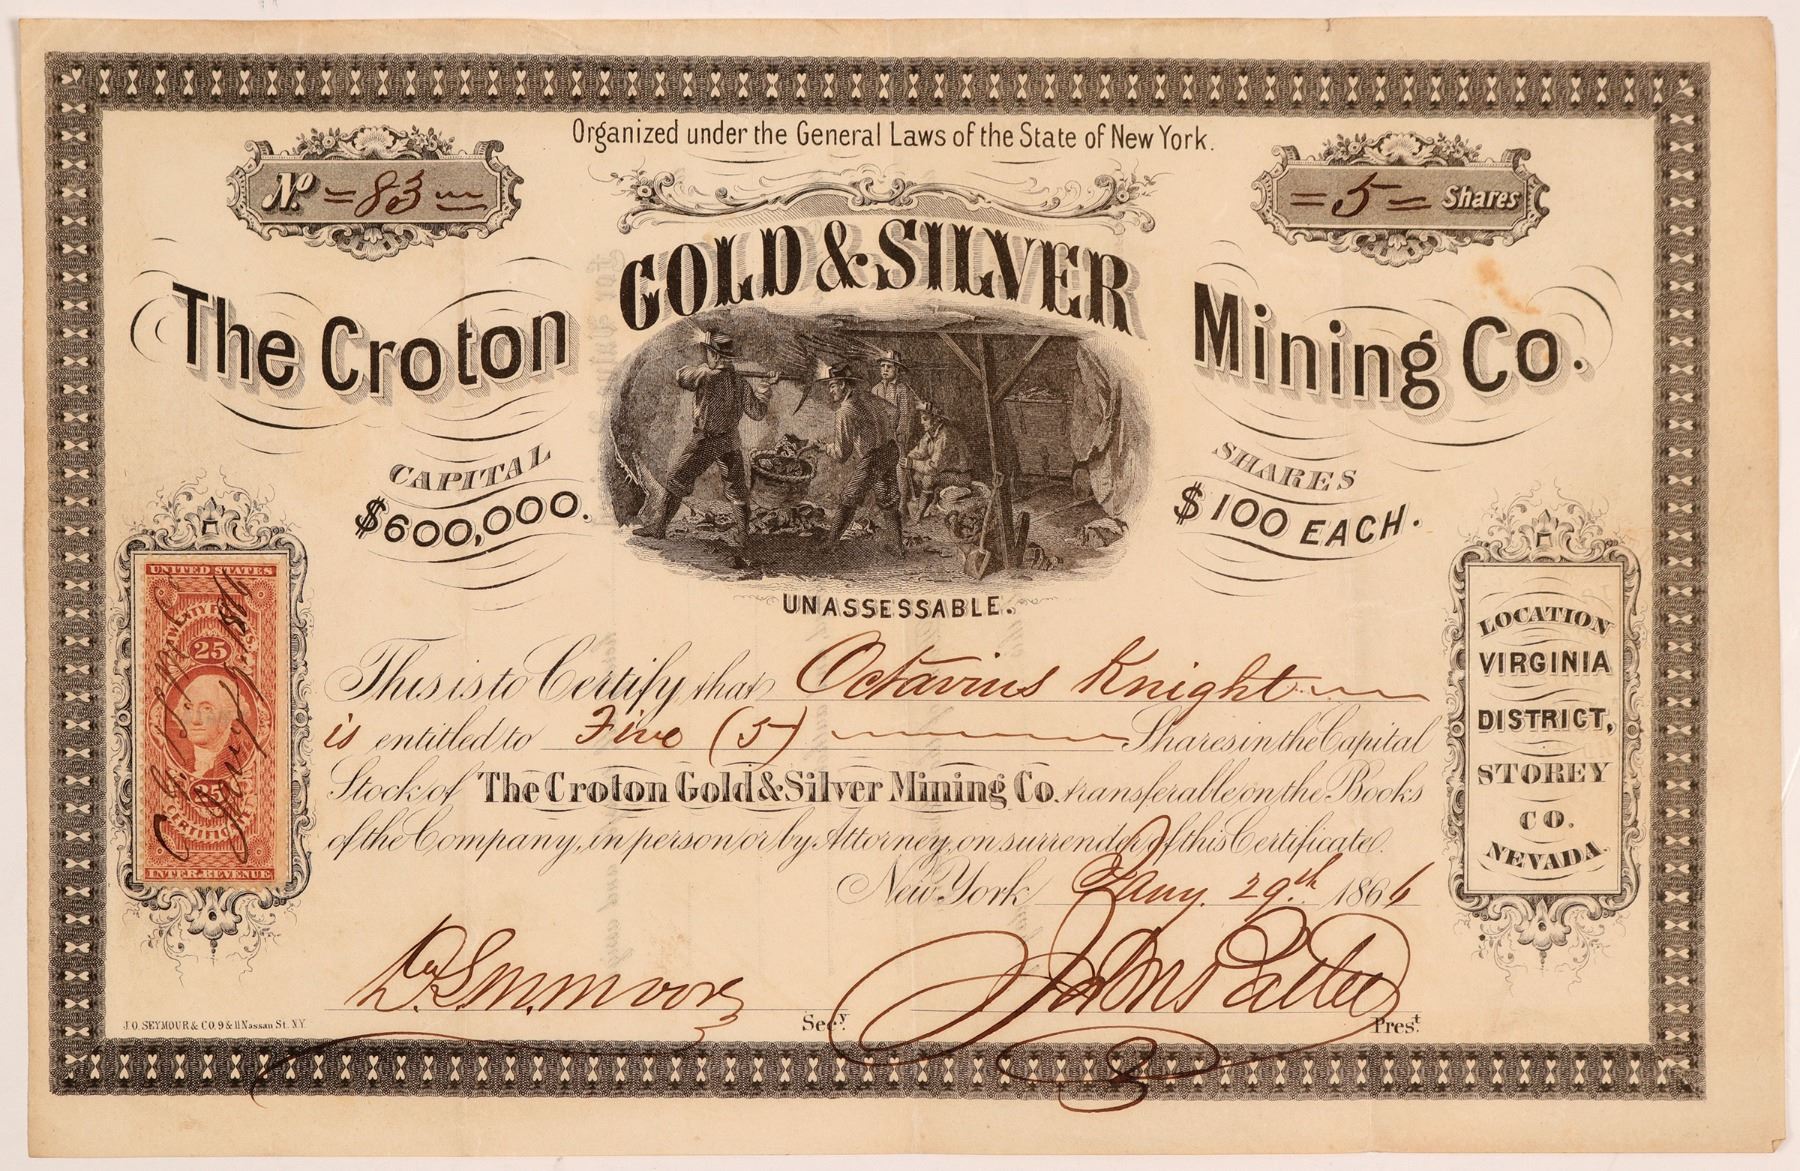 Organized under the General Laws of the State of New York.
No = 83
= 5 = Shares
The Croton GOLD & SILVER Mining Co.
CAPITAL
$600,000.
SHARES
$100 EACH.
UNASSESSABLE.
This is to Certify that Octavius Knight
is entitled to Five (5) Shares in the Capital
Stock of The Croton Gold & Silver Mining Co. transferable on the Books
of the Company, in person or by Attorney, on surrender of this Certificate.
New York Jany. 29th 1866
Secy.
Prest.
J.O. SEYMOUR & CO. 9 & 11 Nassau St. N.Y.
UNITED STATES
25
25
CERTIFICATE
INTER. REVENUE
LOCATION
VIRGINIA
DISTRICT,
STOREY
CO.
NEVADA.